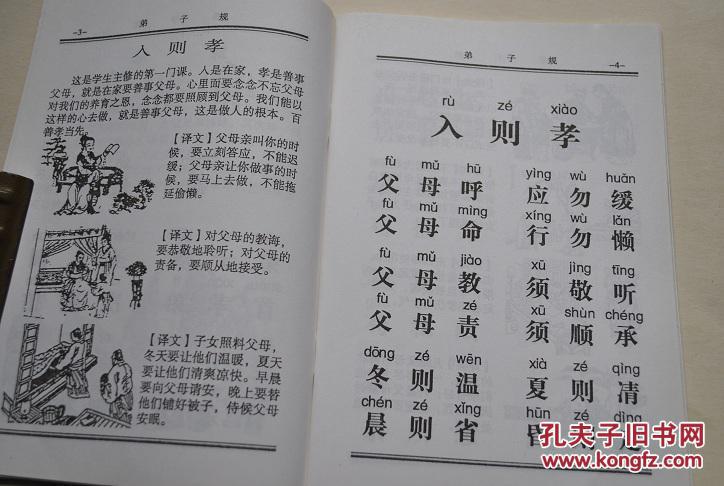 -3-
弟 子 规
入 则 孝
这是学生主修的第一门课。人是在家，孝是善事
父母，就是在家要善事父母。心里面要念念不忘父母
对我们的养育之恩，念念都要照顾到父母。我们能以
这样的心去做，就是善事父母，这是做人的根本。百
善孝当先。
【译文】父母亲叫你的时
候，要立刻答应，不能迟
缓；父母亲让你做事的时
候，要马上去做，不能拖
延偷懒。
【译文】对父母的教诲，
要恭敬地聆听；对父母的
责备，要顺从地接受。
【译文】子女照料父母，
冬天要让他们温暖，夏天
要让他们清爽凉快。早晨
要向父母请安，晚上要替
他们铺好被子，侍候父母
安眠。
弟 子 规
-4-
rù zé xiào
入 则 孝
fù mǔ hū yìng wù huǎn
父 母 呼 应 勿 缓
fù mǔ mìng xíng wù lǎn
父 母 命 行 勿 懒
fù mǔ jiào xū jìng tīng
父 母 教 须 敬 听
fù mǔ zé xū shùn chéng
父 母 责 须 顺 承
dōng zé wēn xià zé qìng
冬 则 温 夏 则 凊
chén zé xǐng hūn dìng
晨 则 省 昏
孔夫子旧书网
www.kongfz.com